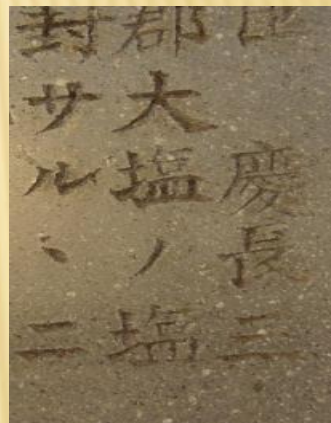 慶長三
郡大塩ノ塩
封サルヽニ